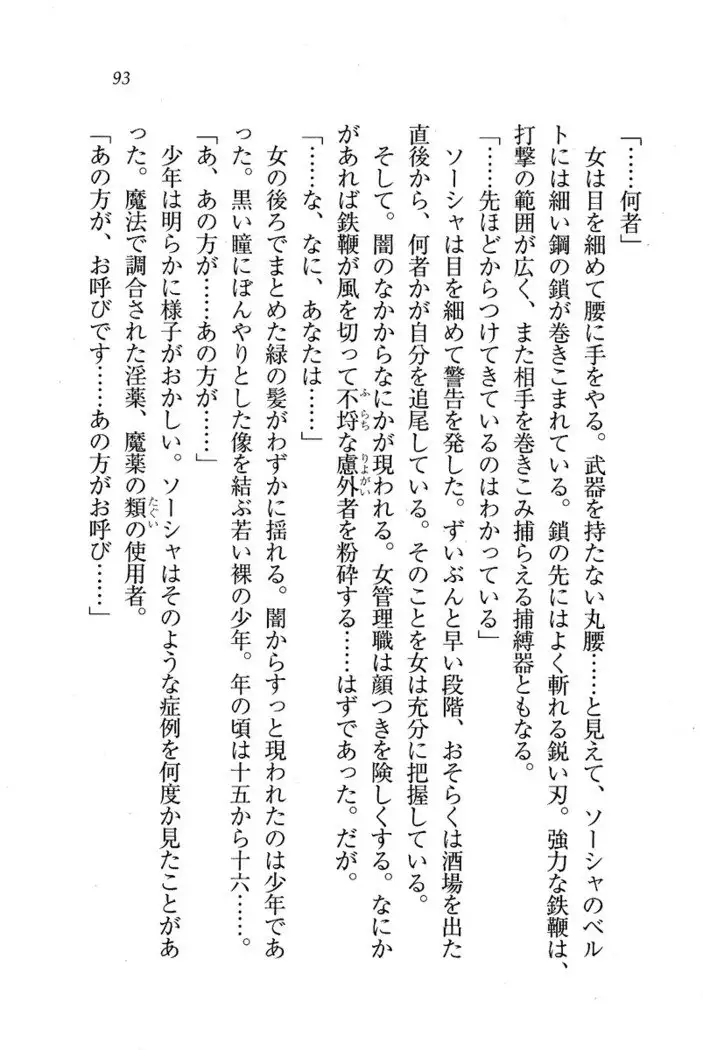 93
「……何者」
　女は目を細めて腰に手をやる。武器を持たない丸腰……と見えて、ソーシャのベル
トには細い鋼の鎖が巻きこまれている。鎖の先にはよく斬れる鋭い刃。強力な鉄鞭は、
打撃の範囲が広く、また相手を巻きこみ捕らえる捕縛器ともなる。
「……先ほどからつけてきているのはわかっている」
　ソーシャは目を細めて警告を発した。ずいぶんと早い段階、おそらくは酒場を出た
直後から、何者かが自分を追尾している。そのことを女は充分に把握している。
　そして。闇のなかからなにかが現われる。女管理職は顔つきを険しくする。なにか
があれば鉄鞭が風を切って不埒な慮外者を粉砕する……はずであった。だが。
「……な、なに、あなたは……」
　女の後ろでまとめた緑の髪がわずかに揺れる。闇からすっと現われたのは少年であ
った。黒い瞳にぼんやりとした像を結ぶ若い裸の少年。年の頃は十五から十六……。
「あ、あの方が……あの方が……」
　少年は明らかに様子がおかしい。ソーシャはそのような症例を何度か見たことがあ
った。魔法で調合された淫薬、魔薬の類の使用者。
「あの方が、お呼びです……あの方がお呼び……」